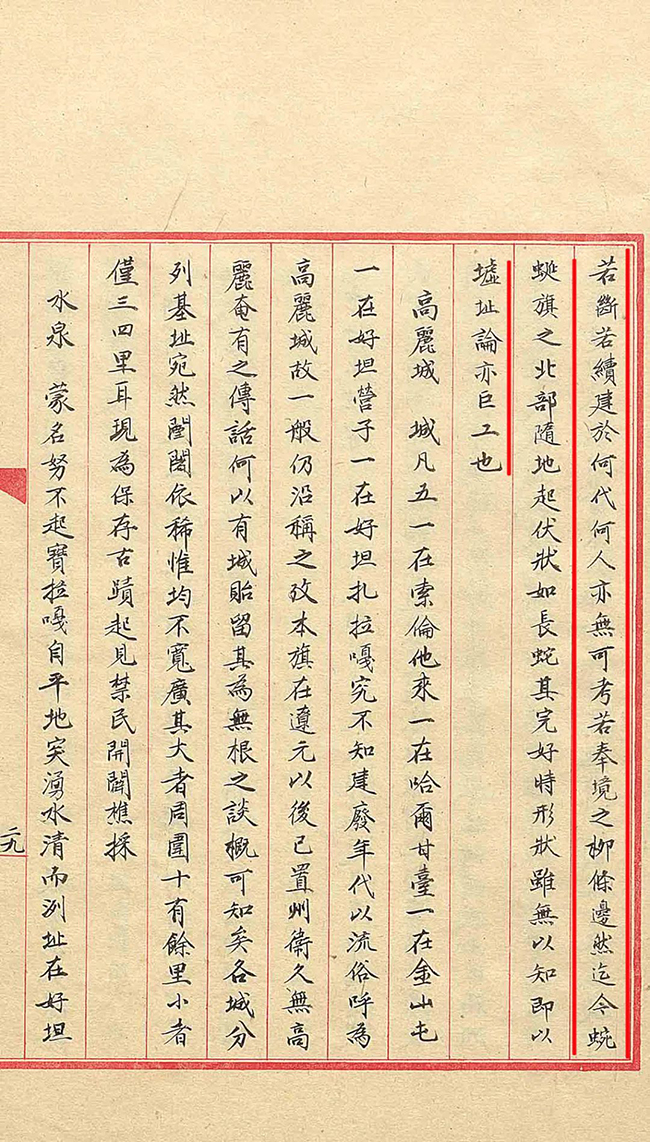 若斷若續建於何代何人亦無可考若奉境之柳條邊然迄今蜿
蜒旗之北部隨地起伏狀如長蛇其完好時形狀雖無以知即以
墟址論亦巨工也
高麗城 城凡五一在索倫他來一在哈爾甘臺一在金山屯
一在好坦營子一在好坦扎拉嘎究不知建廢年代以流俗呼為
高麗城故一般仍沿稱之攷本旗在遼元以後已置州衛久無高
麗奄有之傳話何以有城貽留其為無根之談概可知矣各城分
列基址宛然闉闍依稀惟均不寬廣其大者周圍十有餘里小者
僅三四里耳現為保存古蹟起見禁民開闢樵採
水泉 蒙名努不起寶拉嘎自平地突湧水清而洌址在好坦
二九